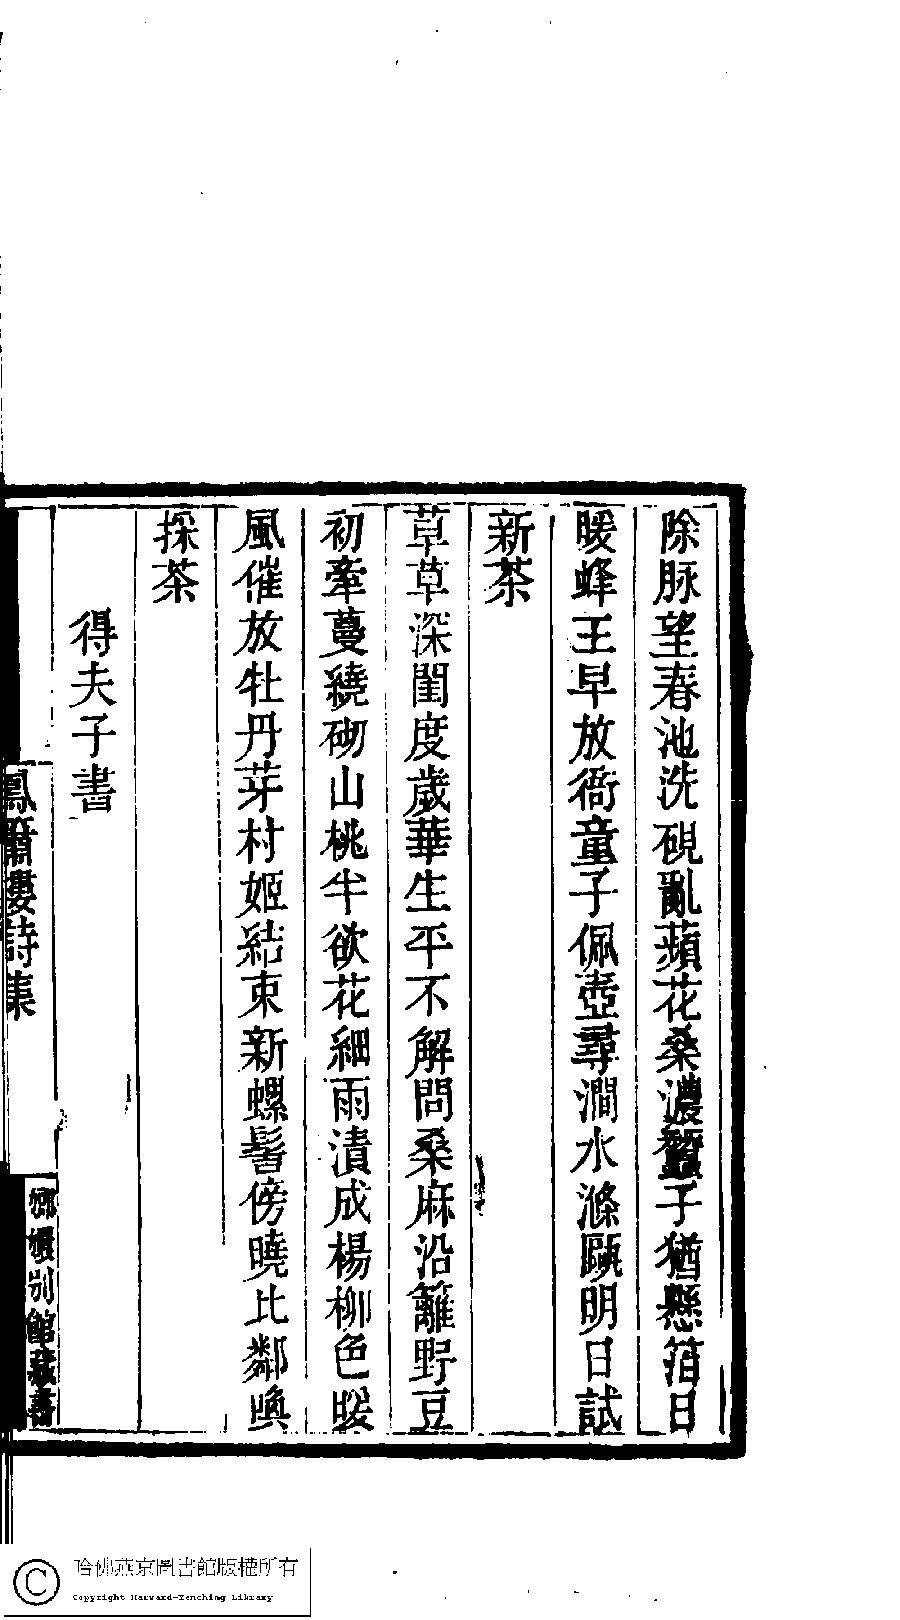 除脉望春池洗硯亂蘋花桑濃蠶子猶懸箔日
暖蜂王早放衙童子佩壺尋澗水滌甌明日試
新茶
草草深閨度歲華生平不解問桑麻沿籬野豆
初牽蔓繞砌山桃半欲花細雨漬成楊柳色暖
風催放牡丹芽村姬結束新螺髻傍曉比鄰喚
採茶
得夫子書
鳳簫樓詩集
嫏嬛別館藏書
哈佛燕京圖書館版權所有
Copyright Harvard-Yenching Library